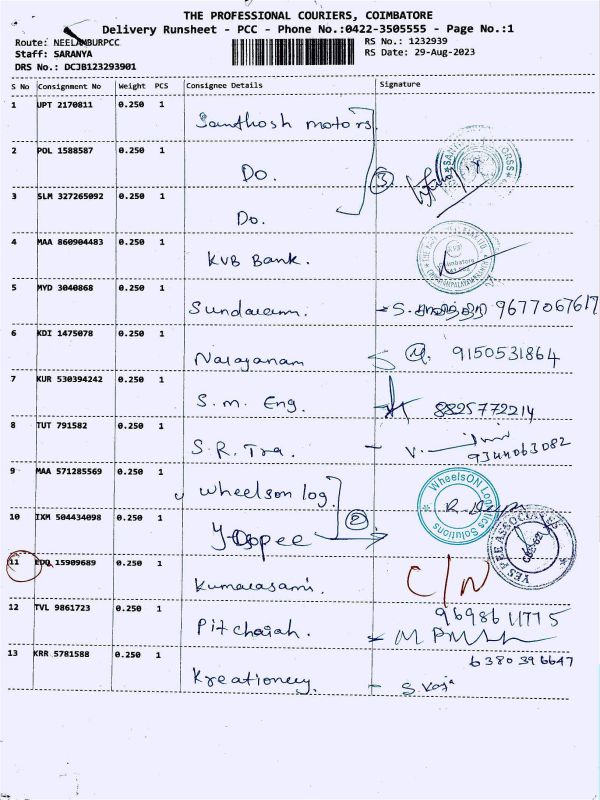 THE PROFESSIONAL COURIERS, COIMBATORE
Delivery Runsheet - PCC - Phone No.:0422-3505555 - Page No.:1
Route: NEELAMBURPCC
RS No.: 1232939
Staff: SARANYA
RS Date: 29-Aug-2023
DRS No.: DCJB123293901
S No Consignment No Weight PCS Consignee Details Signature
1 UPT 2170811 0.250 1 Santhosh motors
2 POL 1588587 0.250 1 Do. 3
3 SLM 327265092 0.250 1 Do.
4 MAA 860904483 0.250 1 KVB Bank.
5 MYD 3040868 0.250 1 Sundaram. 9677067617
6 KDI 1475078 0.250 1 Narayanam 9150531864
7 KUR 530394242 0.250 1 S.m. Eng. 8825772214
8 TUT 791582 0.250 1 S.R. Tra. 9344063082
9 MAA 571285569 0.250 1 Wheelson log. WheelsON Logistics Solutions
10 IXM 504434098 0.250 1 2 YES PEE ASSOCIATES
11 EDQ 15909689 0.250 1 Kumarasami. C/N
12 TVL 9861723 0.250 1 Pitchaiah. 9698611775
13 KRR 5781588 0.250 1 Kreationery. 6380396647
S. Raja